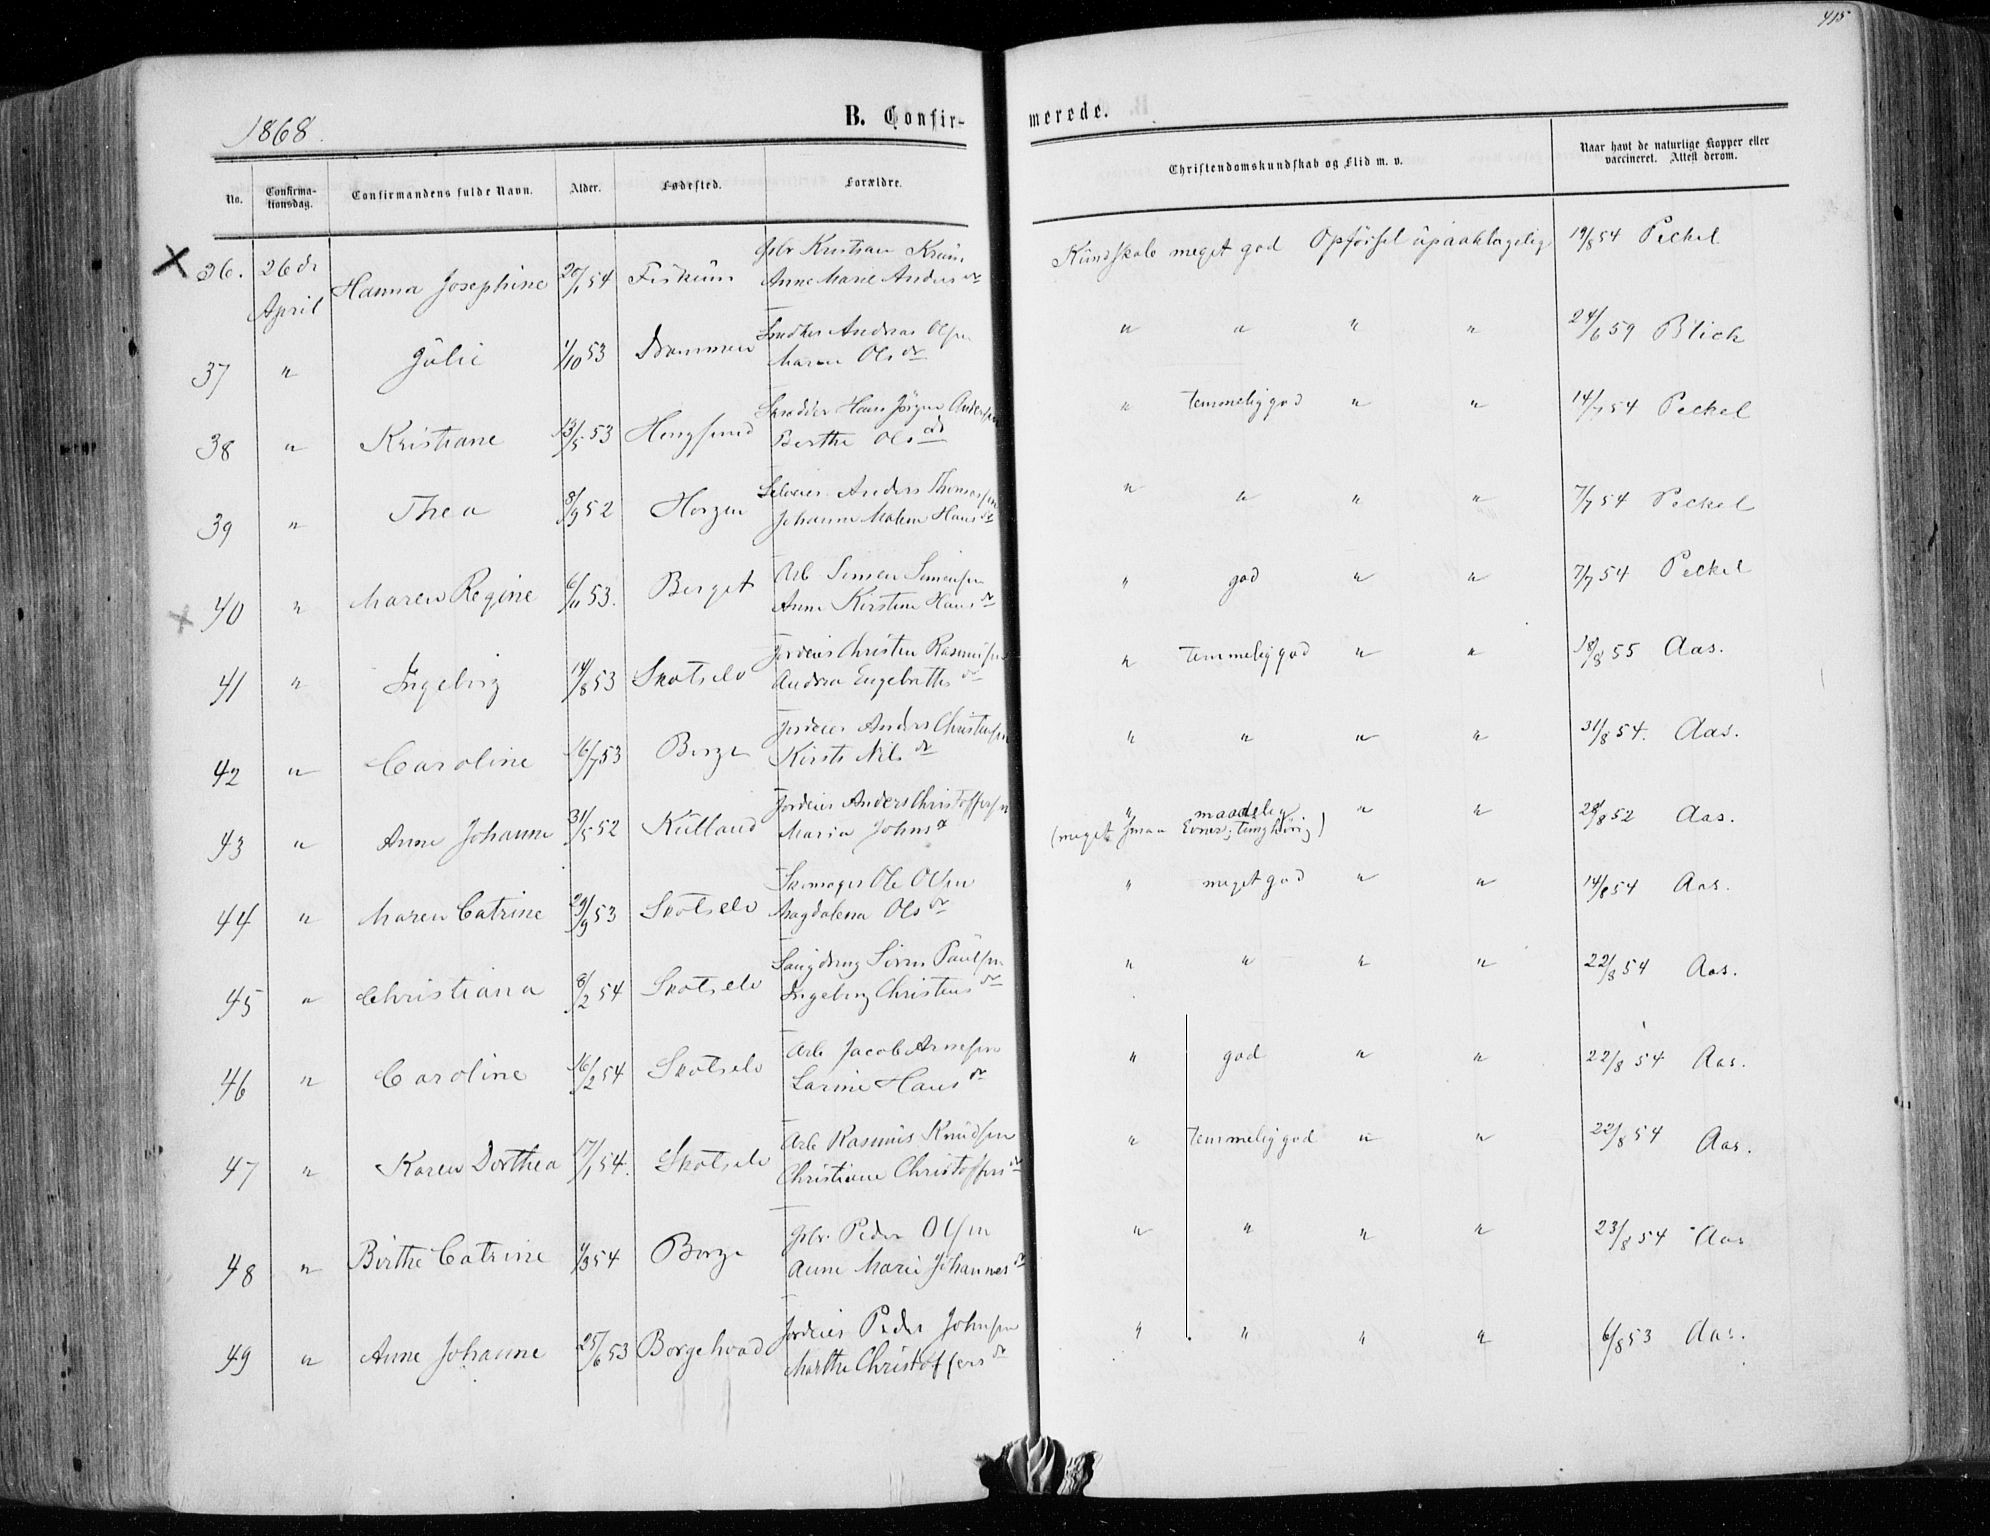 415
1868.
B. Confirmerede.
No. Confirmationsdag. Confirmandens fulde Navn. Alder. Fødested. Forældre. Christendomskundskab og Flid m. v. Naar havt de naturlige Kopper eller vaccineret. Attest derom.
36. 26de April Hanna Josephine 20/1 54 Fiskum Kristian
Anne Marie Andersdr Kundskab meget god Opførsel upaaklagelig 19/8 54 Peckel
37 " Julie 1/10 53 Drammen Andreas Olsen
Maren Olsdr " " " " 24/6 59 Blich
38 " Kristiane 13/5 53 Skrædder Hans Jörgen Andersen
Berthe Olsdr " temmelig god " " 14/7 54 Peckel
39 " Thea 8/9 52 Horgen Selveier Anders Thomassen
Johanne Malene Hansdr " " " " 7/7 54 Peckel
40 " Maren Regine 6/11 53. Berget Arb Simen Simensen
Anne Kirstine Hansdr " god " " 7/7 54 Peckel
41 " Ingeborg 14/8 53 Skotselv Jordeier Christen Rasmussen
Andrea Engebrethsdr " temmelig god " " 18/8 55 Aas.
42 " Caroline 16/7 53 Borge Jordeier Anders Christensen
Kirsti Nilsdr " " " " 31/8 54. Aas.
43 " Anne Johanne 31/5 52 Kulland Jordeier Anders Christoffersen
Maria Johnsdr " maadelig " "
(meget smaa Evner; tunghörig) 28/8 52 Aas.
44 " Maren Catrine 29/9 53 Skotselv Skomager Ole Olsen
Magdalena Olsdr " meget god " " 14/8 54 Aas.
45 " Christiana 8/2 54 Skotselv Sören Paulsen
Ingeborg Christensdr " " " " 22/8 54 Aas.
46 " Caroline 16/2 54 Skotselv Arb Jacob Arnesen
Larine Hansdr " god " " 22/8 54 Aas.
47 " Karen Dorthea 17/1 54. Skotselv Arb Rasmus Knudsen
Christiane Christoffersdr " temmelig god " " 22/8 54 Aas.
48 " Birthe Catrine 1/3 54 Borge Peder Olsen
Anne Marie Johannesdr " " " " 23/8 54 Aas
49 " Anne Johanne 25/6 53 Borgehvad Jordeier Peder Johnsen
Marthe Christoffersdr " " " " 6/8 53 Aas.